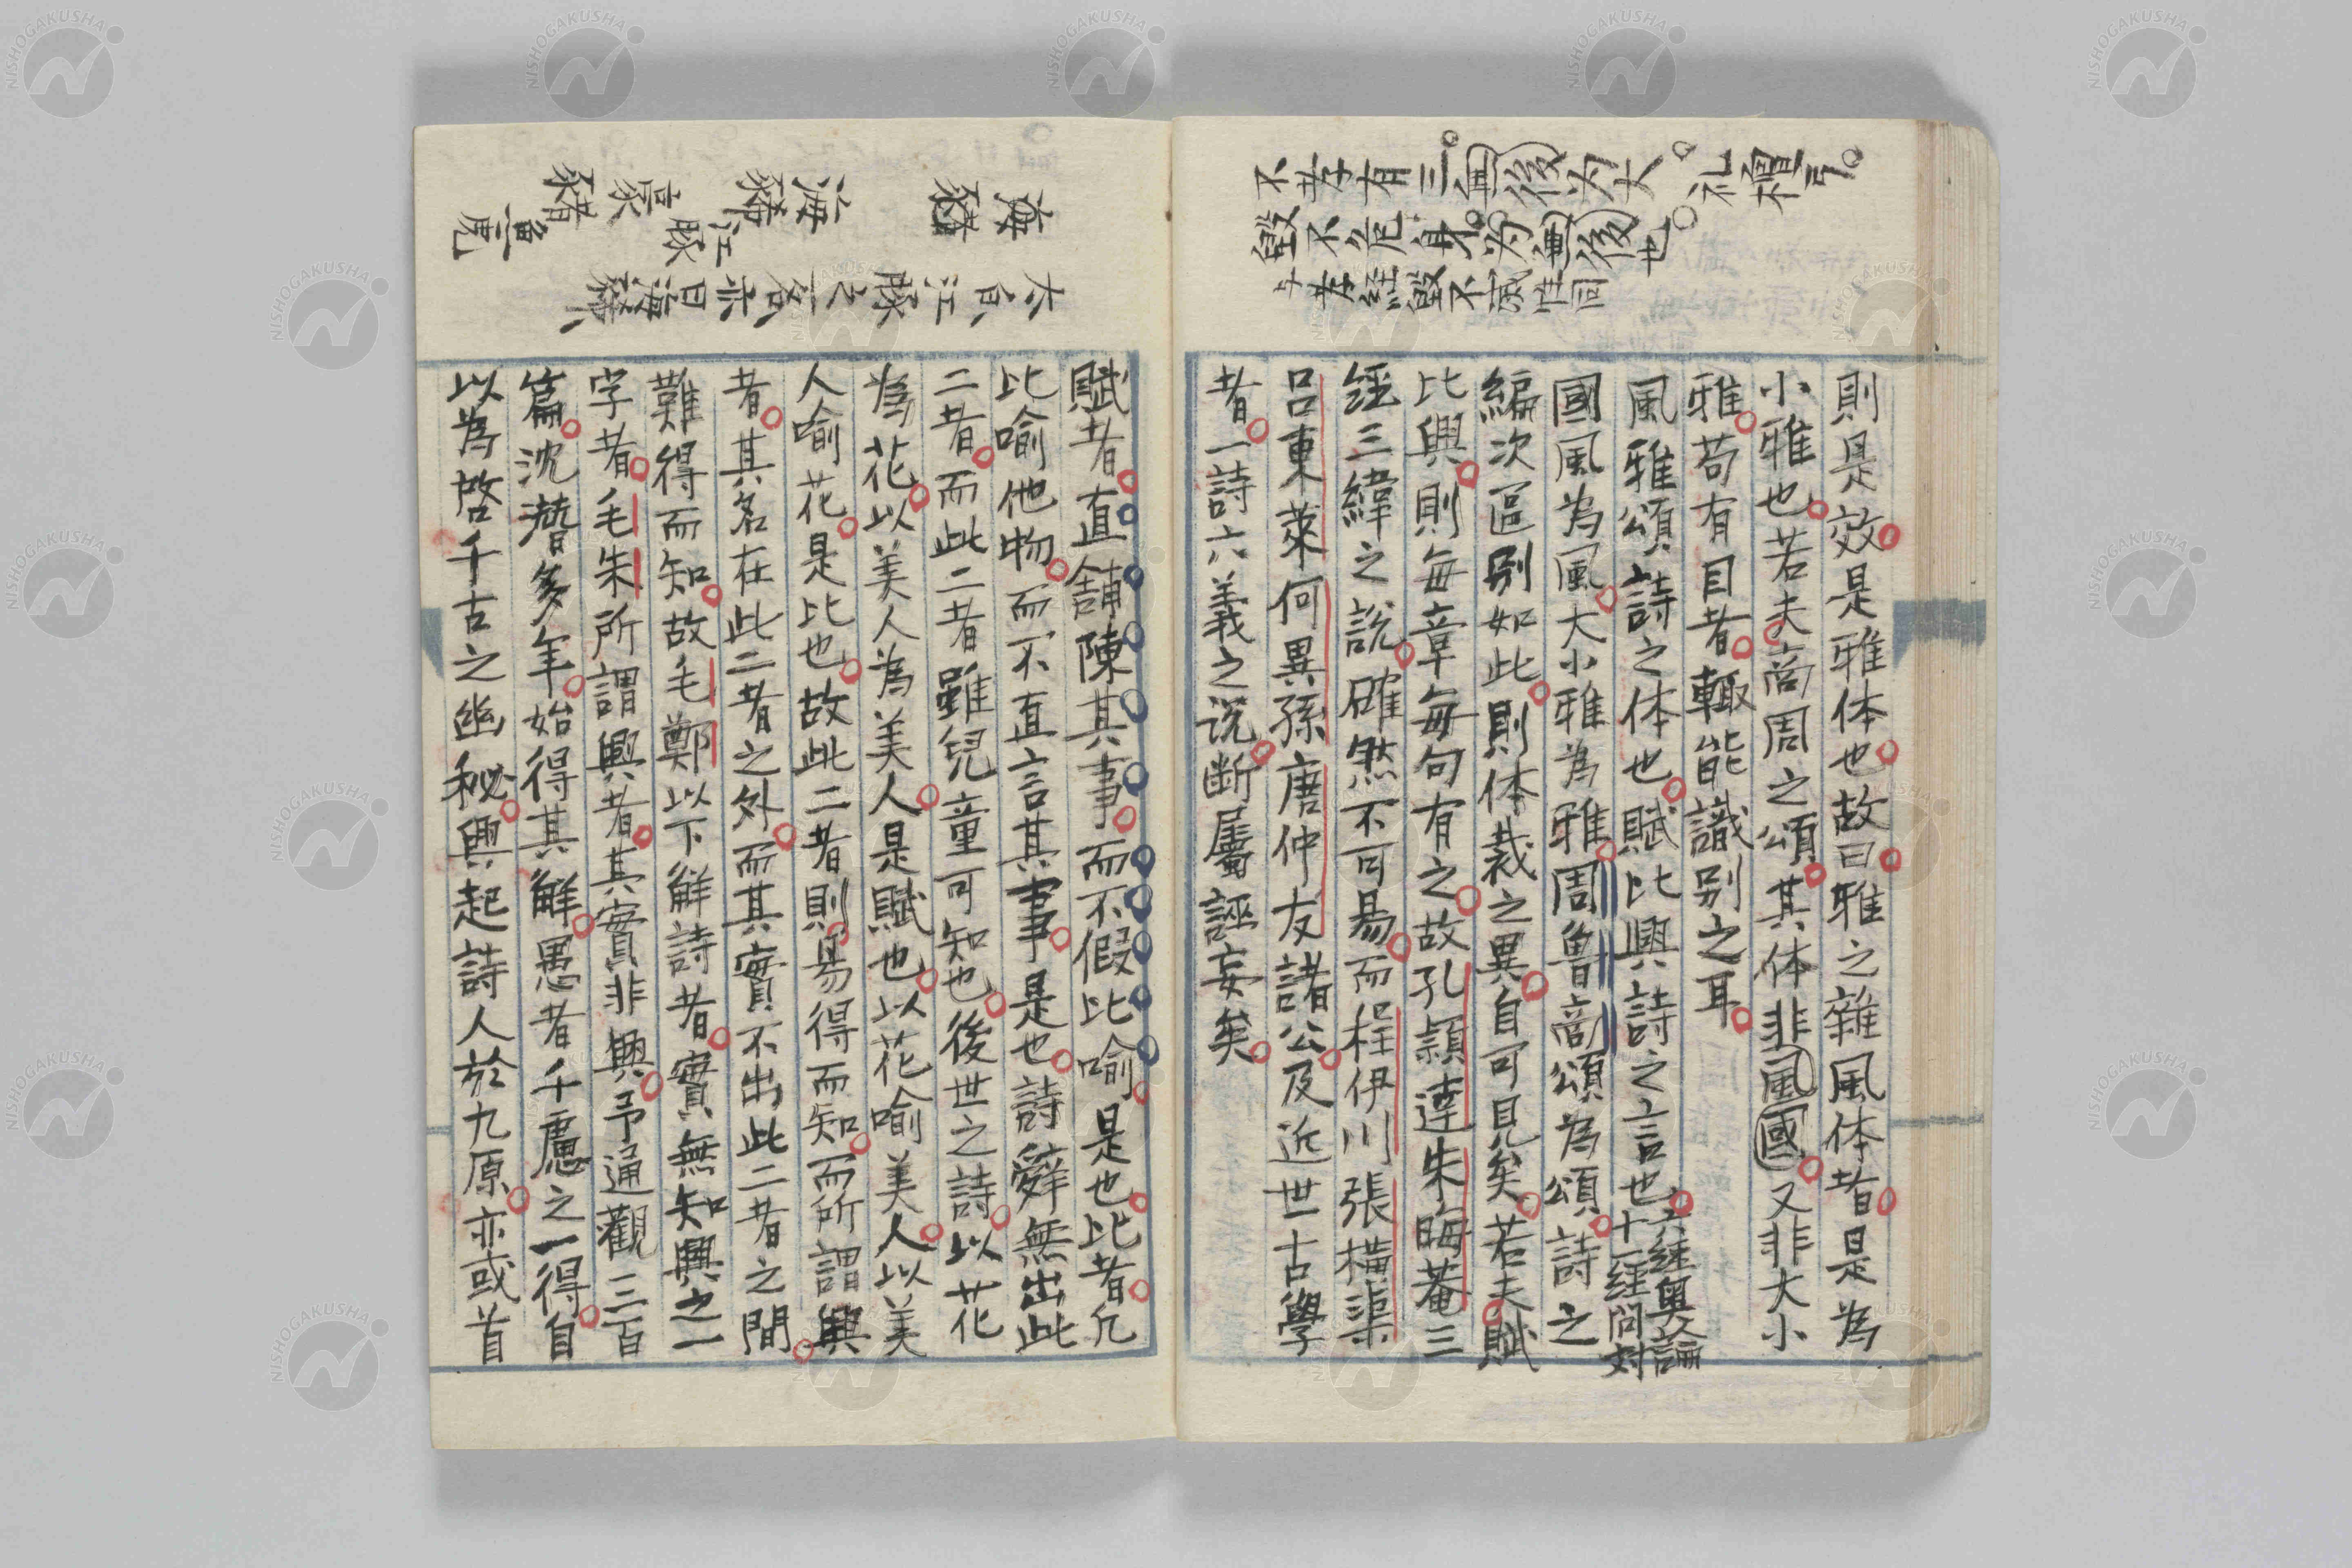 不孝有三無後為大礼檀弓
毀不危身為無後也
与孝経毀不滅性同
則是效是雅体也故曰雅之雜風体者是為
小雅也若夫商周之頌其体非風國又非大小
雅苟有目者輙能識别之耳
風雅頌詩之体也賦比興詩之言也六経奥論
十一経問対
國風為風大小雅為雅周魯商頌為頌詩之
編次區别如此則体裁之異自可見矣若夫賦
比興則每章每句有之故孔頴達朱晦菴三
経三緯之説確然不可易而程伊川張横渠
呂東萊何異孫唐仲友諸公及近世古學
者一詩六義之説断屬誣妄矣
海豬
海豨
江豚
豪豬
魯一見
太白江豚之一名亦曰海豨
賦者直舗陳其事而不假比喻是也比者凢
比喻他物而不直言其事是也詩辭無出此
二者而此二者雖兒童可知也後世之詩以花
為花以美人為美人是賦也以花喻美人以美
人喻花是比也故此二者則易得而知而所謂興
者其名在此二者之外而其實不出此二者之間
難得而知故毛鄭以下鮮詩者實無知興之一
字者毛朱所謂興者其實非興予通觀三百
篇沈潛多年始得其鮮愚者千慮之一得自
以為啓千古之幽秘興起詩人於九原亦或首